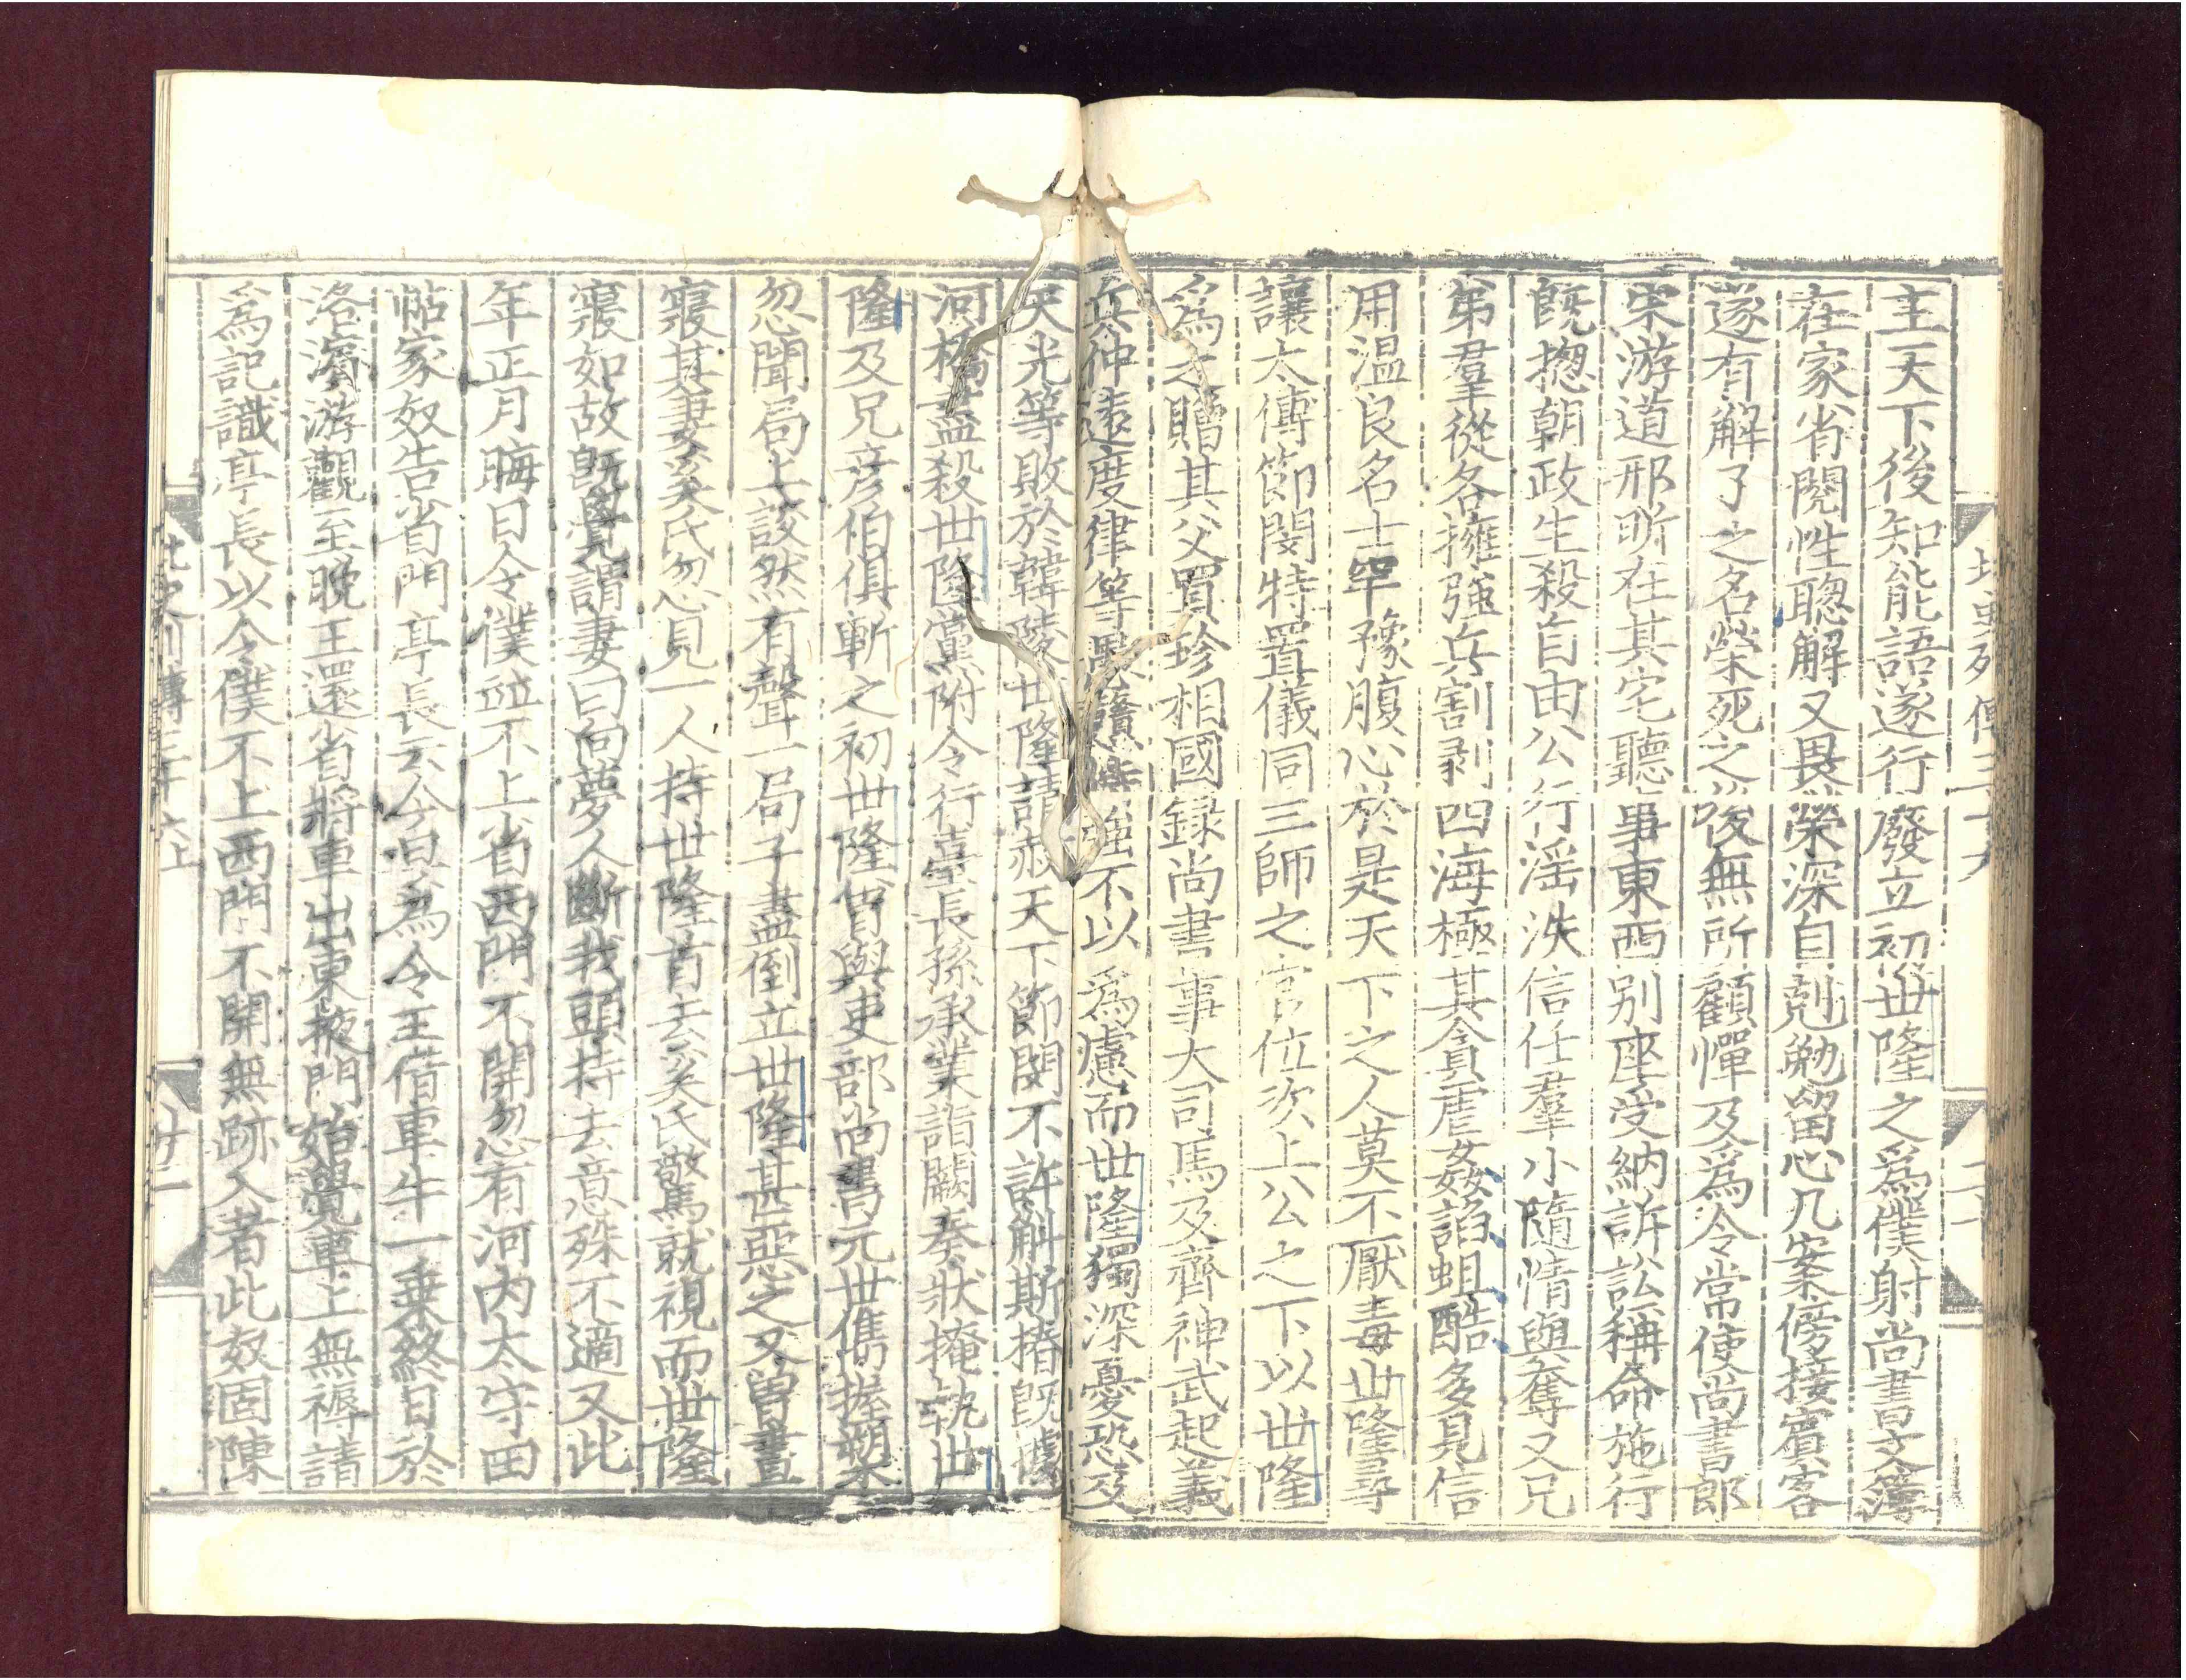 主天下後知能語遂行廢立初世隆之爲僕射尚書文簿
在家省閱性聰解又畏榮深自剋勉留心几案傍接賓客
遂有解了之名榮死之後無所顧憚及爲令常使尚書郎
宋游道邢昕在其宅聽事東西別座受納訴訟稱命施行
旣揔朝政生殺自由公行滛泆信任羣小隨情與奪又兄
弟羣從各擁強兵割剥四海極其貪虐姦諂蛆酷多見信
用温良名士罕豫腹心於是天下之人莫不厭毒世隆尋
讓太傅節閔特置儀同三師之官位次上公之下以世隆
爲之贈其父買珍相國録尚書事大司馬及齊神武起義
兵仲遠度律等愚贛恃強不以爲慮而世隆獨深憂恐及
天光等敗於韓陵世隆請赦天下節閔不許斛斯椿旣據
河橋盡殺世隆黨附令行臺長孫承業詣闕奏狀掩執世
隆及兄彦伯俱斬之初世隆曾與吏部尚書元世儁握槊
忽聞局上詨然有聲一局子盡倒立世隆甚惡之又曾晝
寢其妻奚氏忽見一人持世隆首去奚氏驚就視而世隆
寢如故旣覺謂妻曰向夢人斷我頭持去意殊不適又此
年正月晦日令僕並不上省西門不開忽有河内太守田
帖家奴告省門亭長云今旦爲令王借車牛一乗終日於
洛濱游觀至晚王還省將車出東掖門始覺車上無褥請
爲記識亭長以令僕不上西門不開無跡入者此奴固陳
北史列傳三十六上
廿一